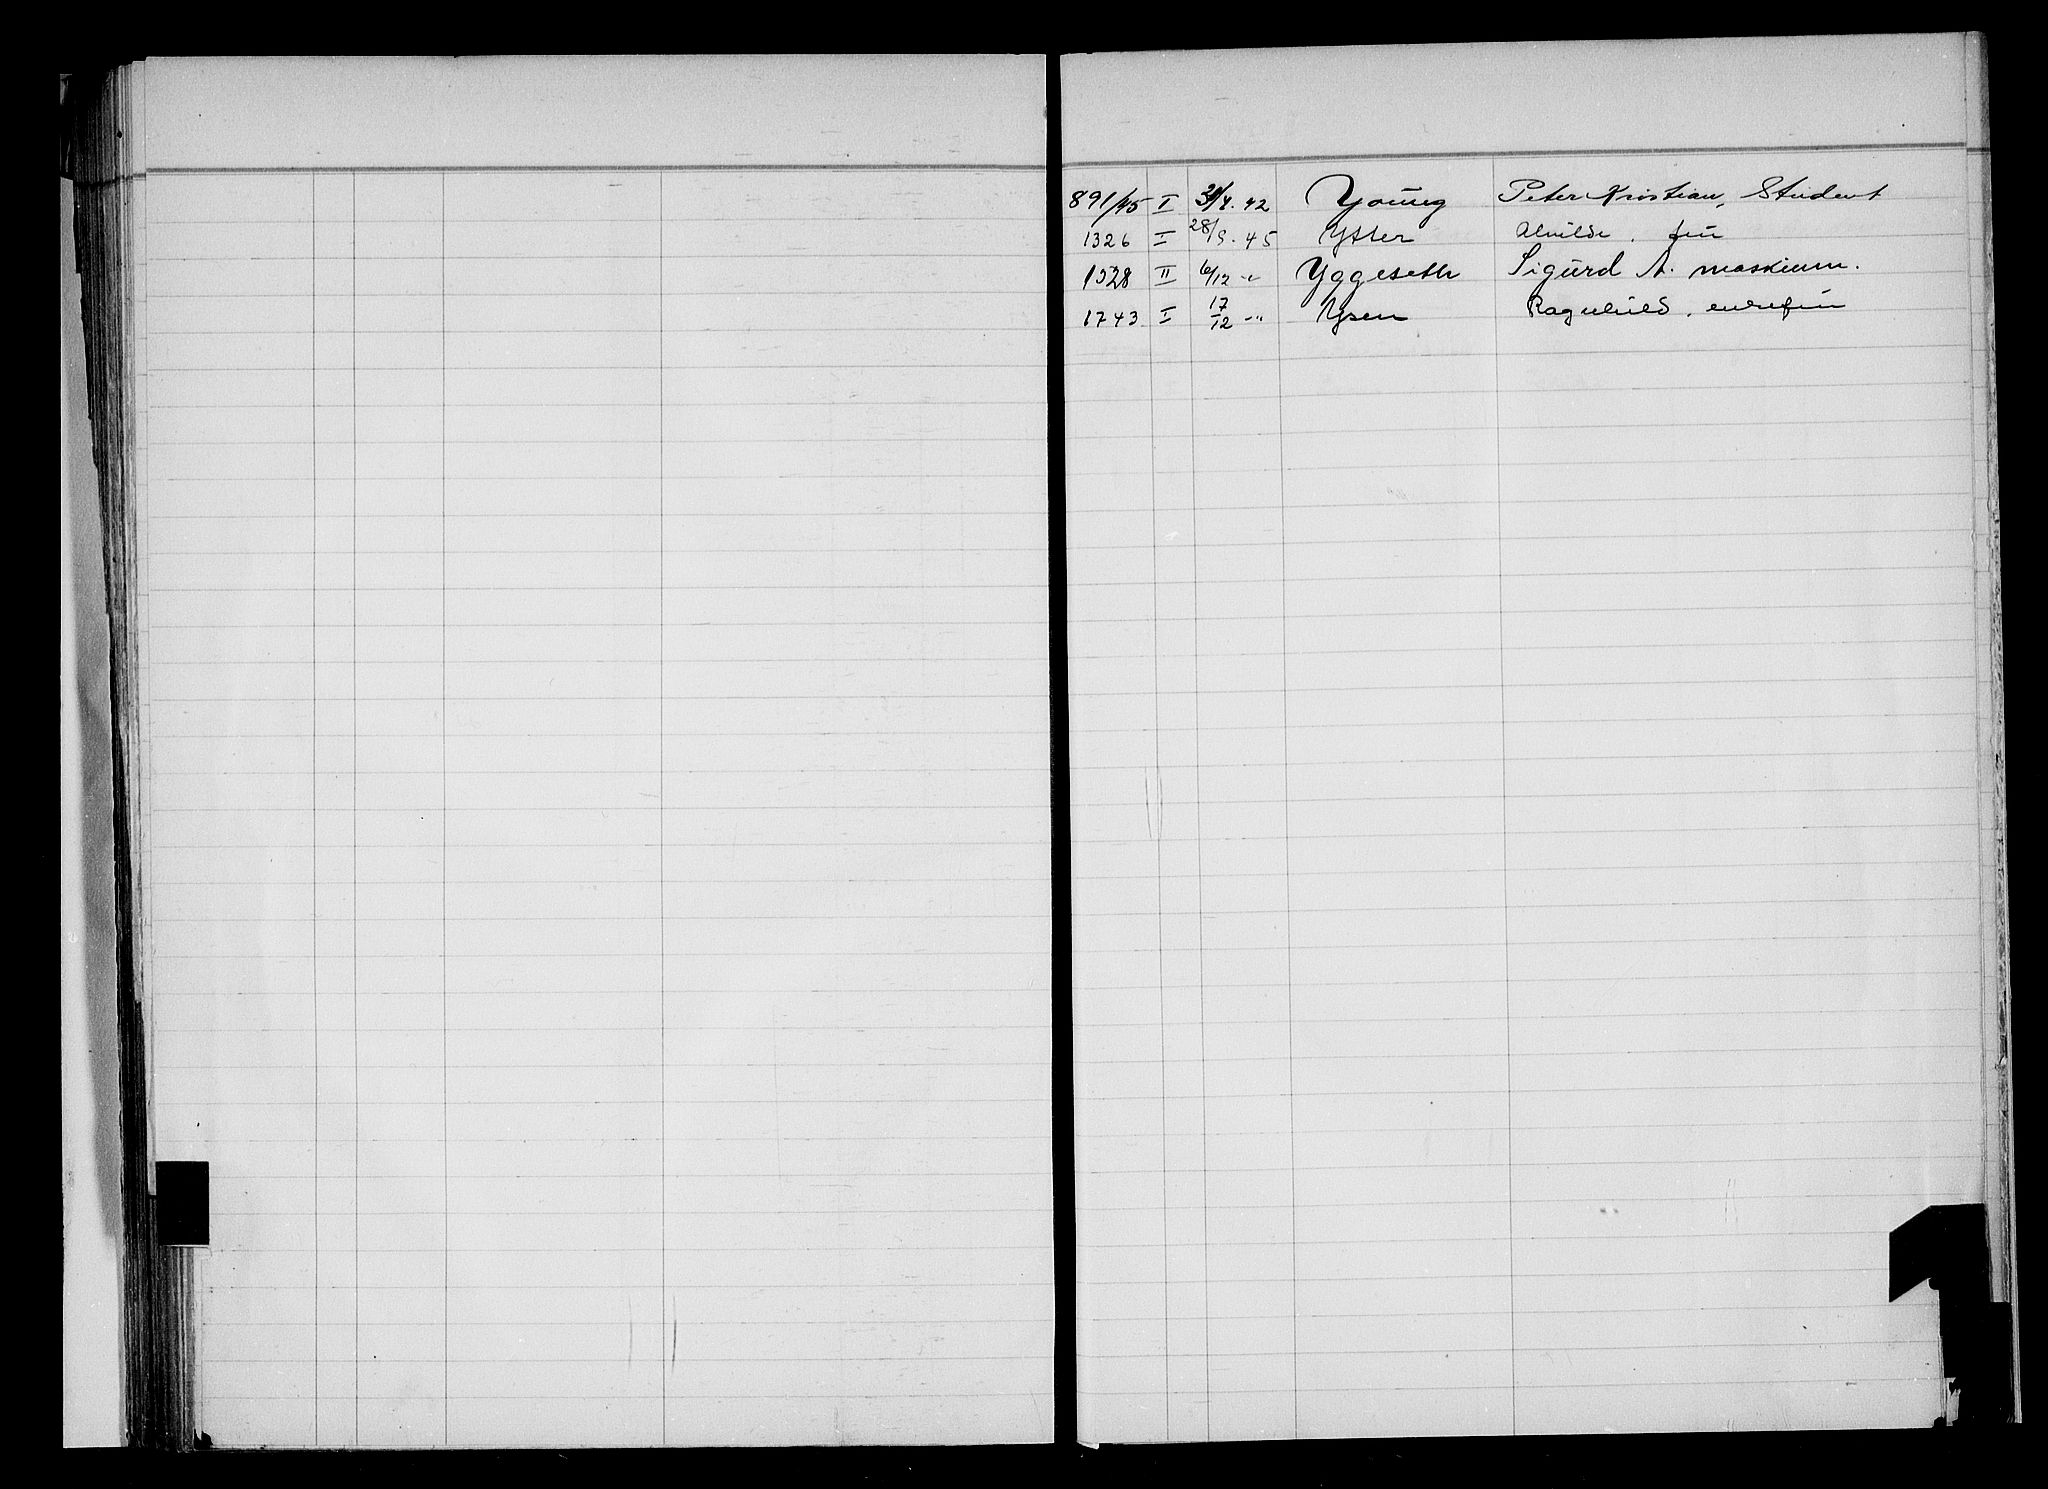 891/45 I 4. 42 Young Peter Kristian, Student
1326 I 28/9. 45 Ytter Alvilde. frú
1528 II 6/12 -"- Yggeseth Sigurd A. maskinm.
1743 I 17/12 -"- Ysen Ragnhild. enkefrú